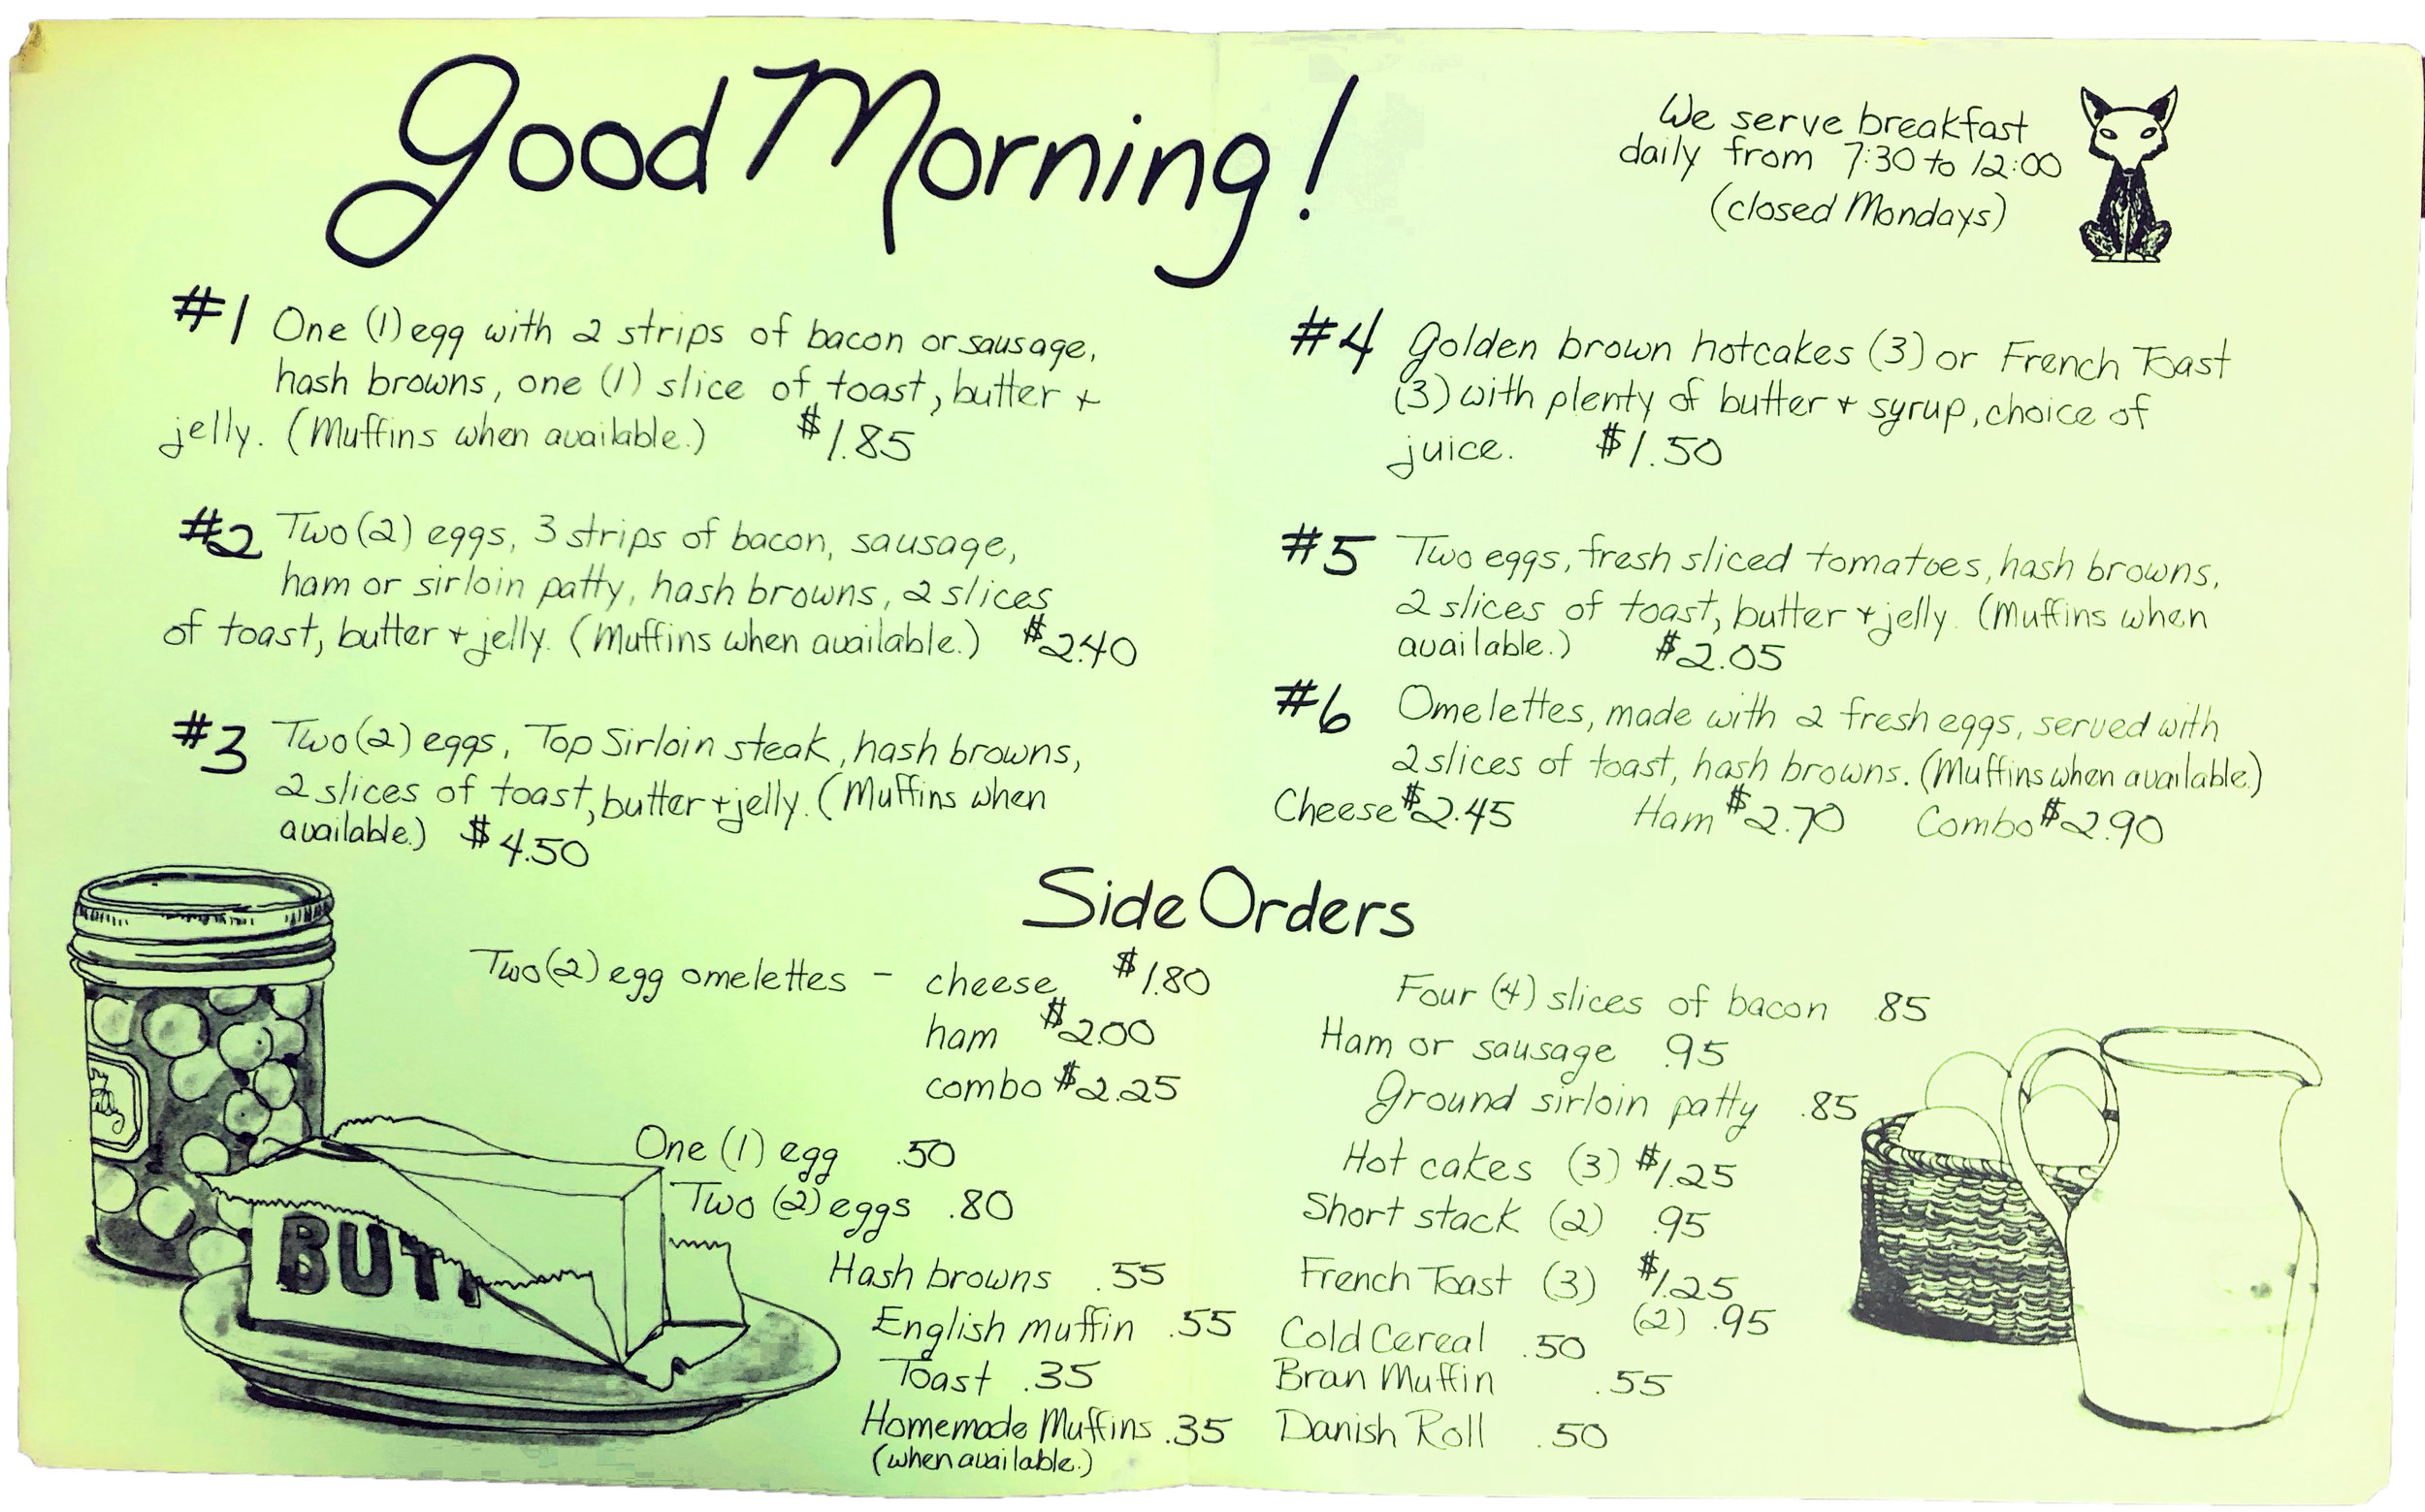 Good Morning!
We serve breakfast
daily from 7:30 to 12:00
(closed Mondays)
#1 One (1) egg with 2 strips of bacon or sausage,
hash browns, one (1) slice of toast, butter +
jelly. (Muffins when available.) $1.85
#2 Two (2) eggs, 3 strips of bacon, sausage,
ham or sirloin patty, hash browns, 2 slices
of toast, butter + jelly. (Muffins when available.) $2.40
#3 Two (2) eggs, Top Sirloin steak, hash browns,
2 slices of toast, butter + jelly. (Muffins when
available.) $4.50
#4 Golden brown hotcakes (3) or French Toast
(3) with plenty of butter + syrup, choice of
juice. $1.50
#5 Two eggs, fresh sliced tomatoes, hash browns,
2 slices of toast, butter + jelly. (Muffins when
available.) $2.05
#6 Omelettes, made with 2 fresh eggs, served with
2 slices of toast, hash browns. (Muffins when available.)
Cheese $2.45 Ham $2.70 Combo $2.90
Side Orders
Two (2) egg omelettes - cheese $1.80
ham $2.00
combo $2.25
One (1) egg .50
Two (2) eggs .80
Hash browns .55
English muffin .55
Toast .35
Homemade Muffins .35
(when available.)
Four (4) slices of bacon .85
Ham or sausage .95
Ground sirloin patty .85
Hot cakes (3) $1.25
Short stack (2) .95
French Toast (3) $1.25
(2) .95
Cold Cereal .50
Bran Muffin .55
Danish Roll .50
BUTT